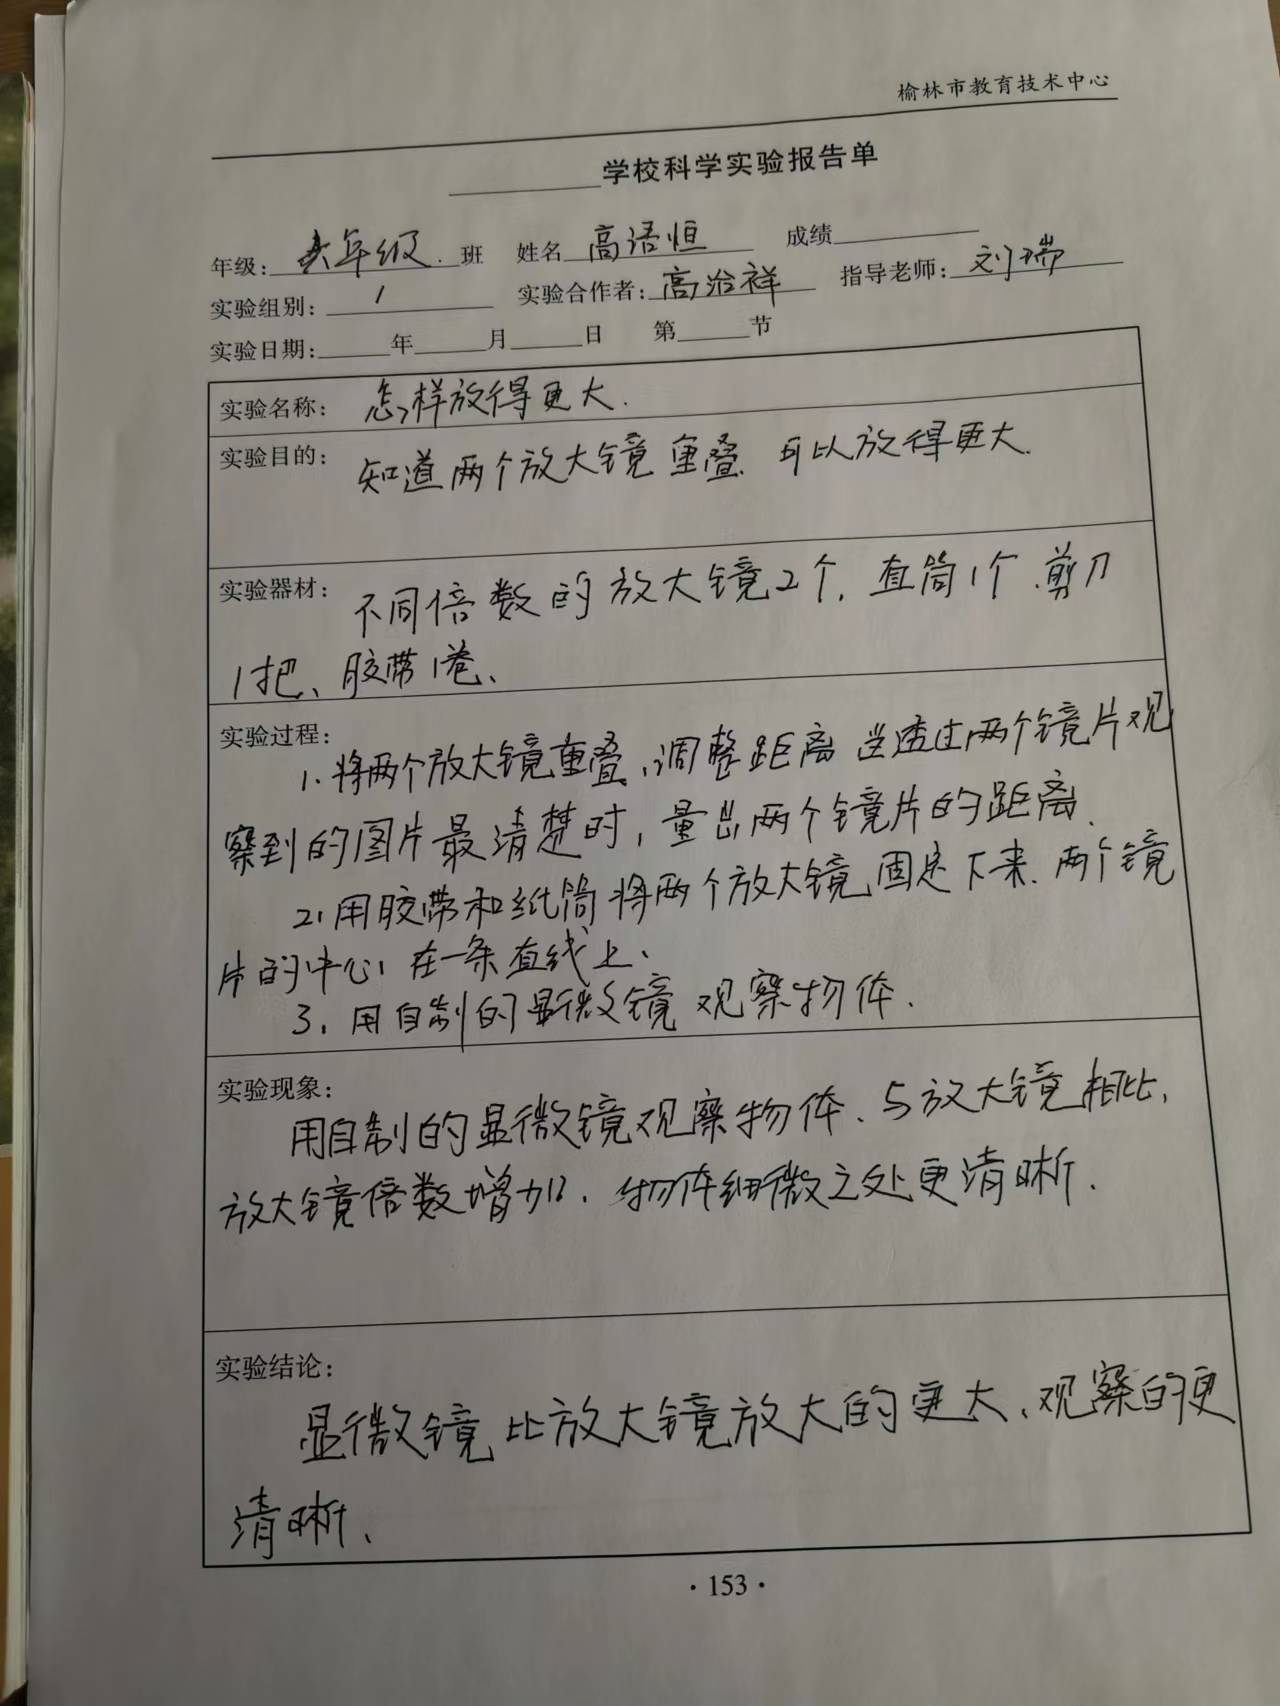 榆林市教育技术中心
学校科学实验报告单
年级: 六年级. 班 姓名 高语恒 成绩
实验组别: 1 实验合作者: 高治祥 指导老师: 刘瑞
实验日期: 年 月 日 第 节
实验名称: 怎样放得更大.
实验目的: 知道两个放大镜重叠、可以放得更大.
实验器材: 不同倍数的放大镜2个, 直筒1个、剪刀
1把、胶带1卷、
实验过程:
1. 将两个放大镜重叠、调整距离 当透过两个镜片观
察到的图片最清楚时, 量出两个镜片的距离、
2. 用胶带和纸筒将两个放大镜固定下来、两个镜
片的中心 在一条直线上、
3. 用自制的显微镜观察物体.
实验现象:
用自制的显微镜观察物体、与放大镜相比,
放大镜倍数增加、物体细微之处更清晰.
实验结论:
显微镜比放大镜放大的更大、观察的更
清晰、
·153·